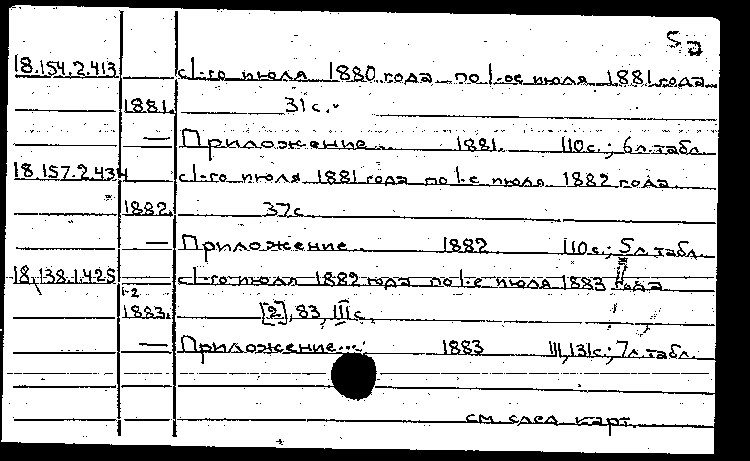 5а
18.154.2.413 с 1-го июля 1880 года по 1-ое июля 1881 года
1881. 31 с.
— Приложение... 1881. 110 с.; 6 л. табл.
18.157.2.434 с 1-го июля 1881 года по 1-е июля 1882 года
1882. 37 с
— Приложение... 1882 110 с.; 5 л. табл.
18.138.1.425 с 1-го июля 1882 года по 1-е июля 1883 года
1-2
1883. [2], 83, III с.
— Приложение... 1883 III, 131 с.; 7 л. табл.
см. след карт.